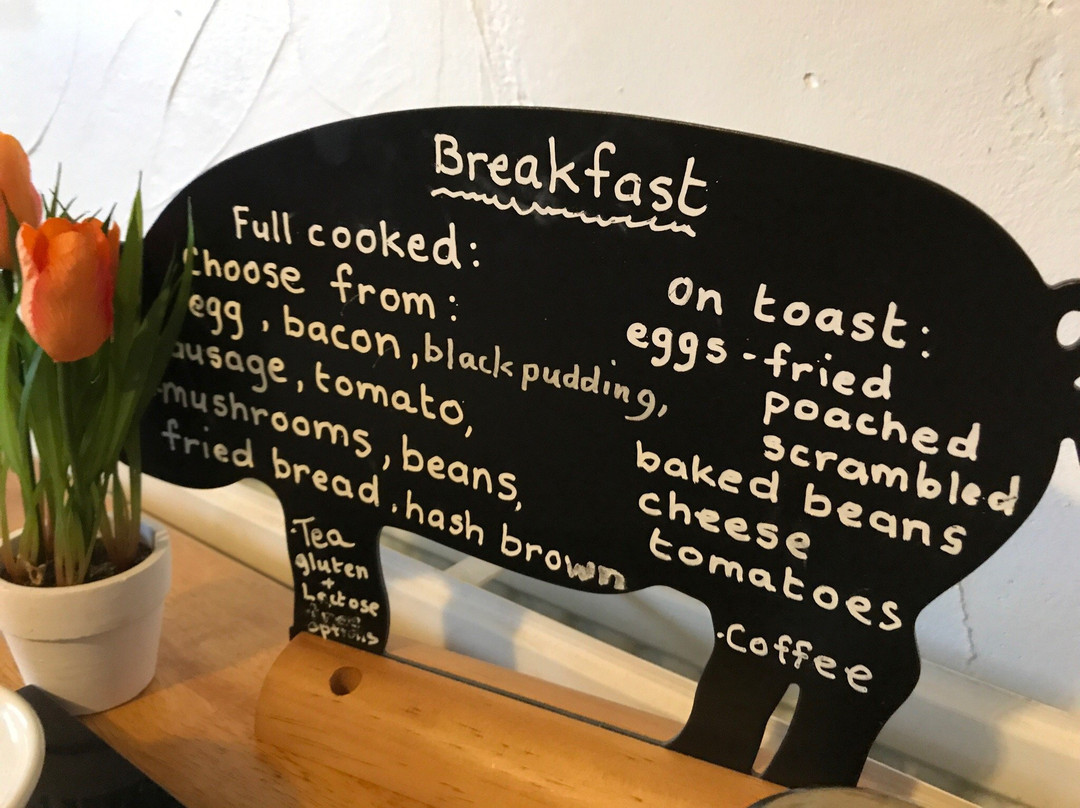 Breakfast
Full cooked:
Choose from:
egg, bacon, black pudding,
sausage, tomato,
mushrooms, beans,
fried bread, hash brown
on toast:
eggs - fried
poached
scrambled
baked beans
cheese
tomatoes
·Tea
gluten
+
Lactose
free
options
·Coffee